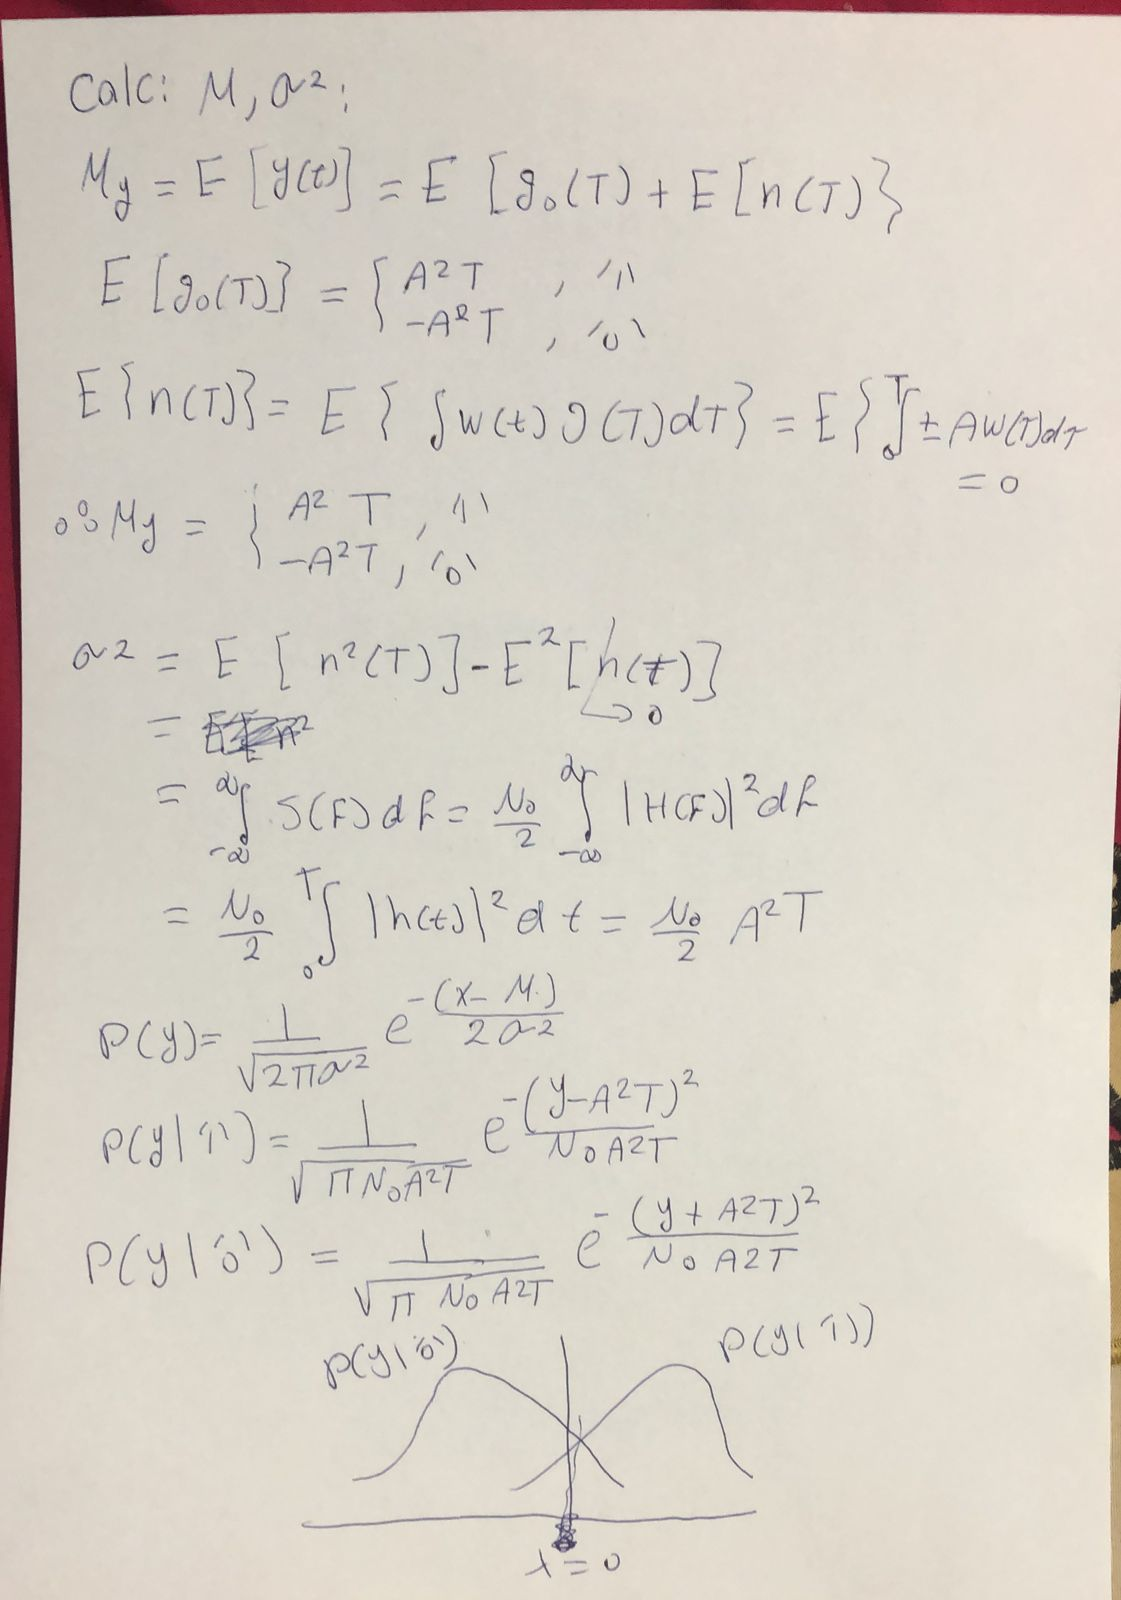 Calc: M, σ²:
My = E [y(t)] = E [g₀(T) + E [n(T)}
E [g₀(T)} = { A²T , '1'
-A²T , '0'
E{n(T)} = E { ∫w(t) g(T)dT} = E{ ∫₀ᵀ ± AW(T)dT
= 0
∴ My = { A² T , '1'
-A²T, '0'
σ² = E [ n²(T)] - E² [n(t)]
→ 0
= ∫_{-∞}^{∞} S(F) df = N₀/2 ∫_{-∞}^{∞} |H(F)|² df
= N₀/2 ∫₀ᵀ |h(t)|² dt = N₀/2 A²T
P(y) = 1/√(2πσ²) e^{-(x-M)/2σ²}
P(y|'1') = 1/√(πN₀A²T) e^{-(y-A²T)²/N₀A²T}
P(y|'0') = 1/√(π N₀A²T) e^{-(y+A²T)²/N₀A²T}
P(y|'0') P(y|'1')
λ = 0